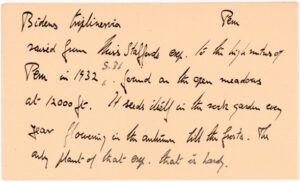 Bidens triplinervia Peru
raised from Miss Staffords exp. to the high mts of
Peru in 1932 S.86. found on the open meadows
at 12000 ft. It seeds itself in the rock garden every
year flowering in the autumn till the frosts. The
only plant of that exp. that is hardy.